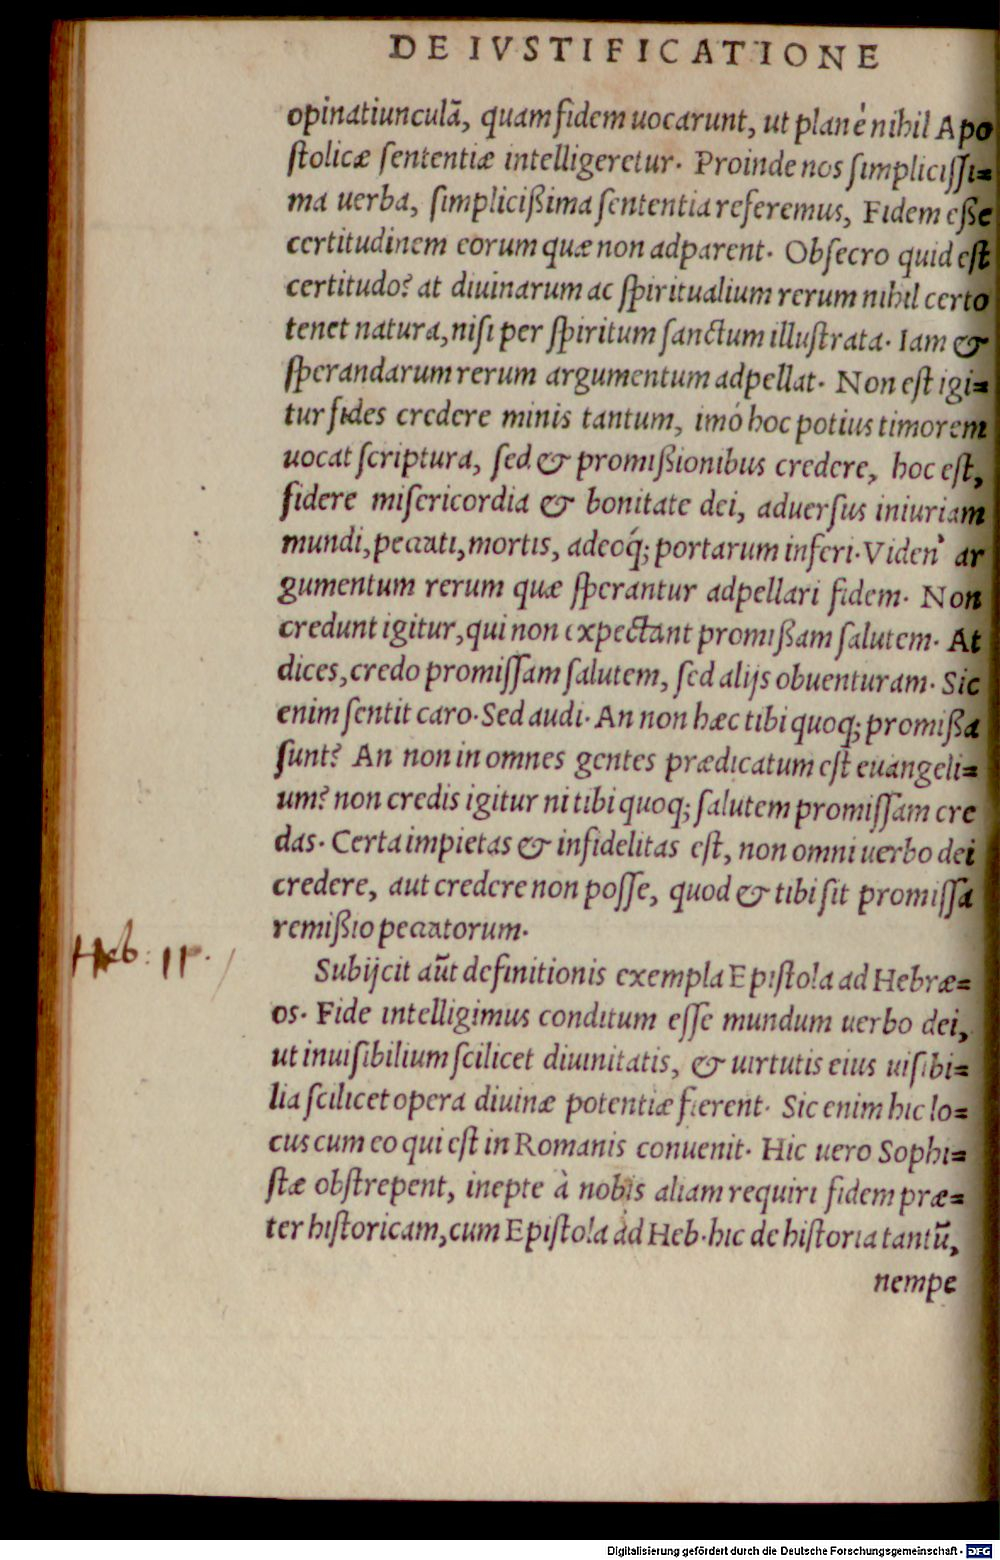 DE IVSTIFICATIONE
opinatiunculã, quam fidem uocarunt, ut planè nihil Apo
ſtolicæ ſententiæ intelligeretur. Proinde nos ſimpliciſſi=
ma uerba, ſimplicißima ſententia referemus, Fidem eße
certitudinem eorum quæ non adparent. Obſecro quid eſt
certitudo? at diuinarum ac ſpiritualium rerum nihil certo
tenet natura, niſi per ſpiritum ſanctum illuſtrata. Iam &
ſperandarum rerum argumentum adpellat. Non eſt igi=
tur fides credere minis tantum, imó hoc potius timorem
uocat ſcriptura, ſed & promißionibus credere, hoc eſt,
fidere miſericordia & bonitate dei, aduerſus iniuriam
mundi, peccati, mortis, adeoq́; portarum inferi. Viden' ar
gumentum rerum quæ ſperantur adpellari fidem. Non
credunt igitur, qui non expectant promißam ſalutem. At
dices, credo promiſſam ſalutem, ſed alijs obuenturam. Sic
enim ſentit caro. Sed audi. An non hæc tibi quoq; promißa
ſunt? An non in omnes gentes prædicatum eſt euangeli=
um? non credis igitur ni tibi quoq; ſalutem promiſſam cre
das. Certa impietas & infidelitas eſt, non omni uerbo dei
credere, aut credere non poſſe, quod & tibi ſit promiſſa
remißio peccatorum.
Heb: 11.
Subijcit aũt definitionis exempla Epiſtola ad Hebræ=
os. Fide intelligimus conditum eſſe mundum uerbo dei,
ut inuiſibilium ſcilicet diuinitatis, & uirtutis eius uiſibi=
lia ſcilicet opera diuinæ potentiæ fierent. Sic enim hic lo=
cus cum eo qui eſt in Romanis conuenit. Hic uero Sophi=
ſtæ obſtrepent, inepte à nobis aliam requiri fidem præ=
ter hiſtoricam, cum Epiſtola ad Heb. hic de hiſtoria tantũ,
nempe
Digitalisierung gefördert durch die Deutsche Forschungsgemeinschaft - DFG